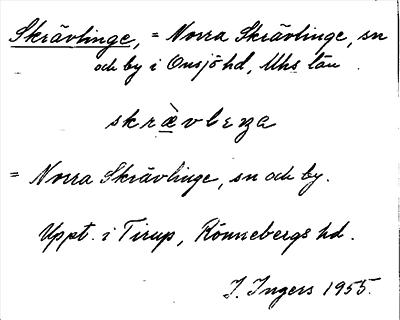 Skrävlinge, = Norra Skrävlinge, sn
och by i Onsjö hd, Mhs län.
skræ̀vleŋa
= Norra Skrävlinge, sn och by.
Uppt. i Tirup, Rönnebergs hd.
I. Ingers 1955.